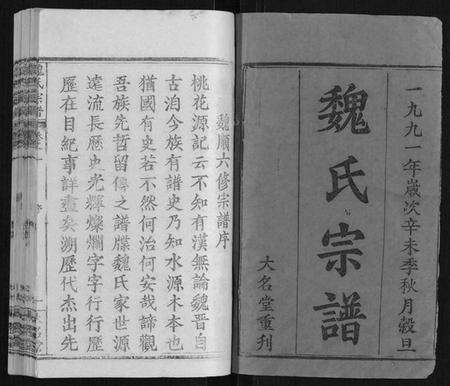 一九九一年歲次辛未季秋月穀旦
魏氏宗譜
大名堂重刊
魏順六修宗譜序
桃花源記云不知有漢無論魏晋自
古洎今族有譜史乃知水源木本也
猶國有史若不然何治何安哉諦觀
吾族先哲留傳之譜牒魏氏家世源
遠流長歷史光輝燦爛字字行行歷
歷在目紀事詳盡矣溯歷代杰出先